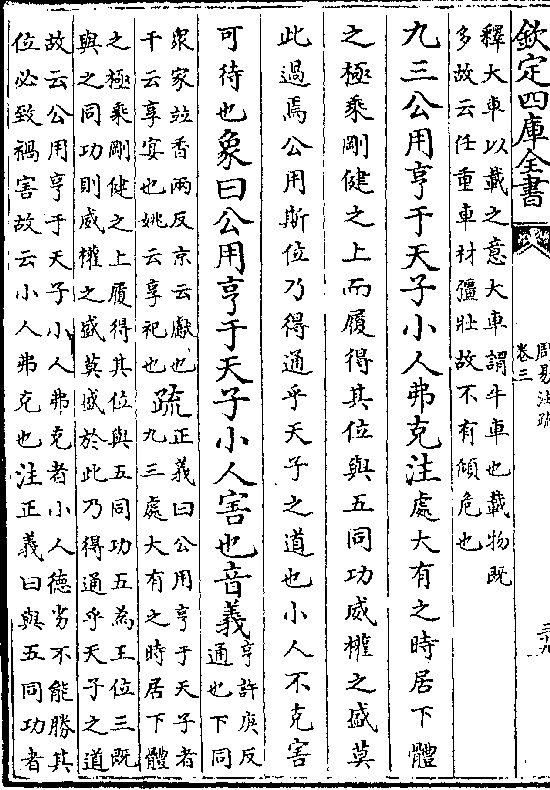 欽定四庫全書
周易注疏
卷三
三十九
釋大車以載之意大車謂牛車也載物既
多故云任重車材彊壯故不有傾危也
九三公用亨于天子小人弗克注處大有之時居下體
之極乘剛健之上而履得其位與五同功威權之盛莫
此過焉公用斯位乃得通乎天子之道也小人不克害
可待也象曰公用亨于天子小人害也音義亨許庚反
通也下同
衆家並香兩反京云獻也
干云享宴也姚云享祀也疏正義曰公用亨于天子者
九三處大有之時居下體
之極乘剛健之上履得其位與五同功五為王位三既
與之同功則威權之盛莫盛於此乃得通乎天子之道
故云公用亨于天子小人弗克者小人德劣不能勝其
位必致禍害故云小人弗克也注正義曰與五同功者